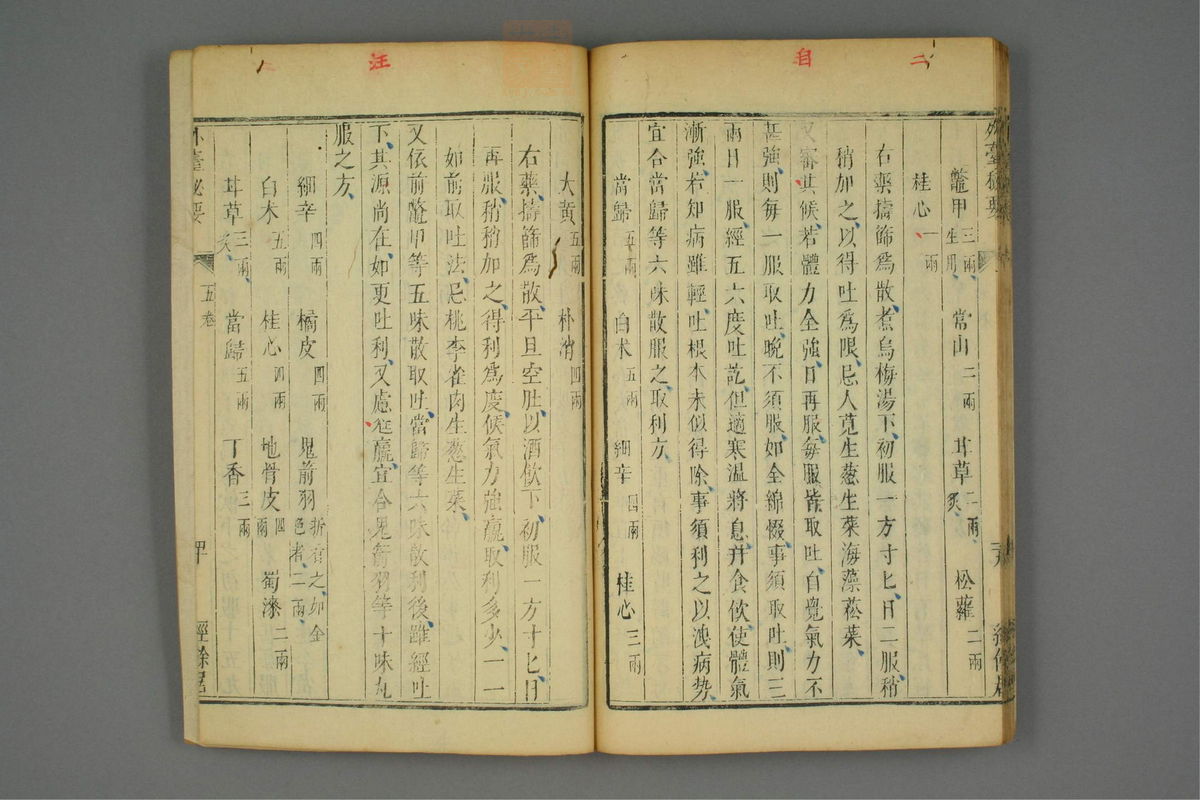 二
自
外臺秘要
鼈甲三兩生用 常山二兩 甘草二兩炙 松蘿二兩
桂心一兩
右藥擣篩爲散煮烏梅湯下初服一方寸匕日二服稍
稍加之以得吐爲限忌人莧生葱生菜海藻菘菜
又審其候若體力全強日再服每服皆取吐自覺氣力不
甚強則每一服取吐晚不須服如全綿惙事須取吐則三
兩日一服經五六度吐訖但適寒溫將息并食飲使體氣
漸強若知病雖輕吐根本未似得除事須利之以洩病勢
宜合當歸等六味散服之取利方
當歸五兩 白术五兩 細辛四兩 桂心三兩
汪
大黄五兩 朴消四兩
右藥擣篩爲散平旦空肚以酒飲下初服一方寸匕日
再服稍稍加之得利爲度候氣力強羸取利多少一一
如前取吐法忌桃李雀肉生葱生菜
又依前鼈甲等五味散取吐當歸等六味散利後雖經吐
下其源尚在如更吐利又慮尫羸宜合鬼箭羽等十味丸
服之方
細辛四兩 橘皮四兩 鬼箭羽折看之如金色者二兩
白术五兩 桂心四兩 地骨皮四兩 蜀漆二兩
甘草三兩炙 當歸五兩 丁香三兩
外臺秘要
五卷
四十
經餘居